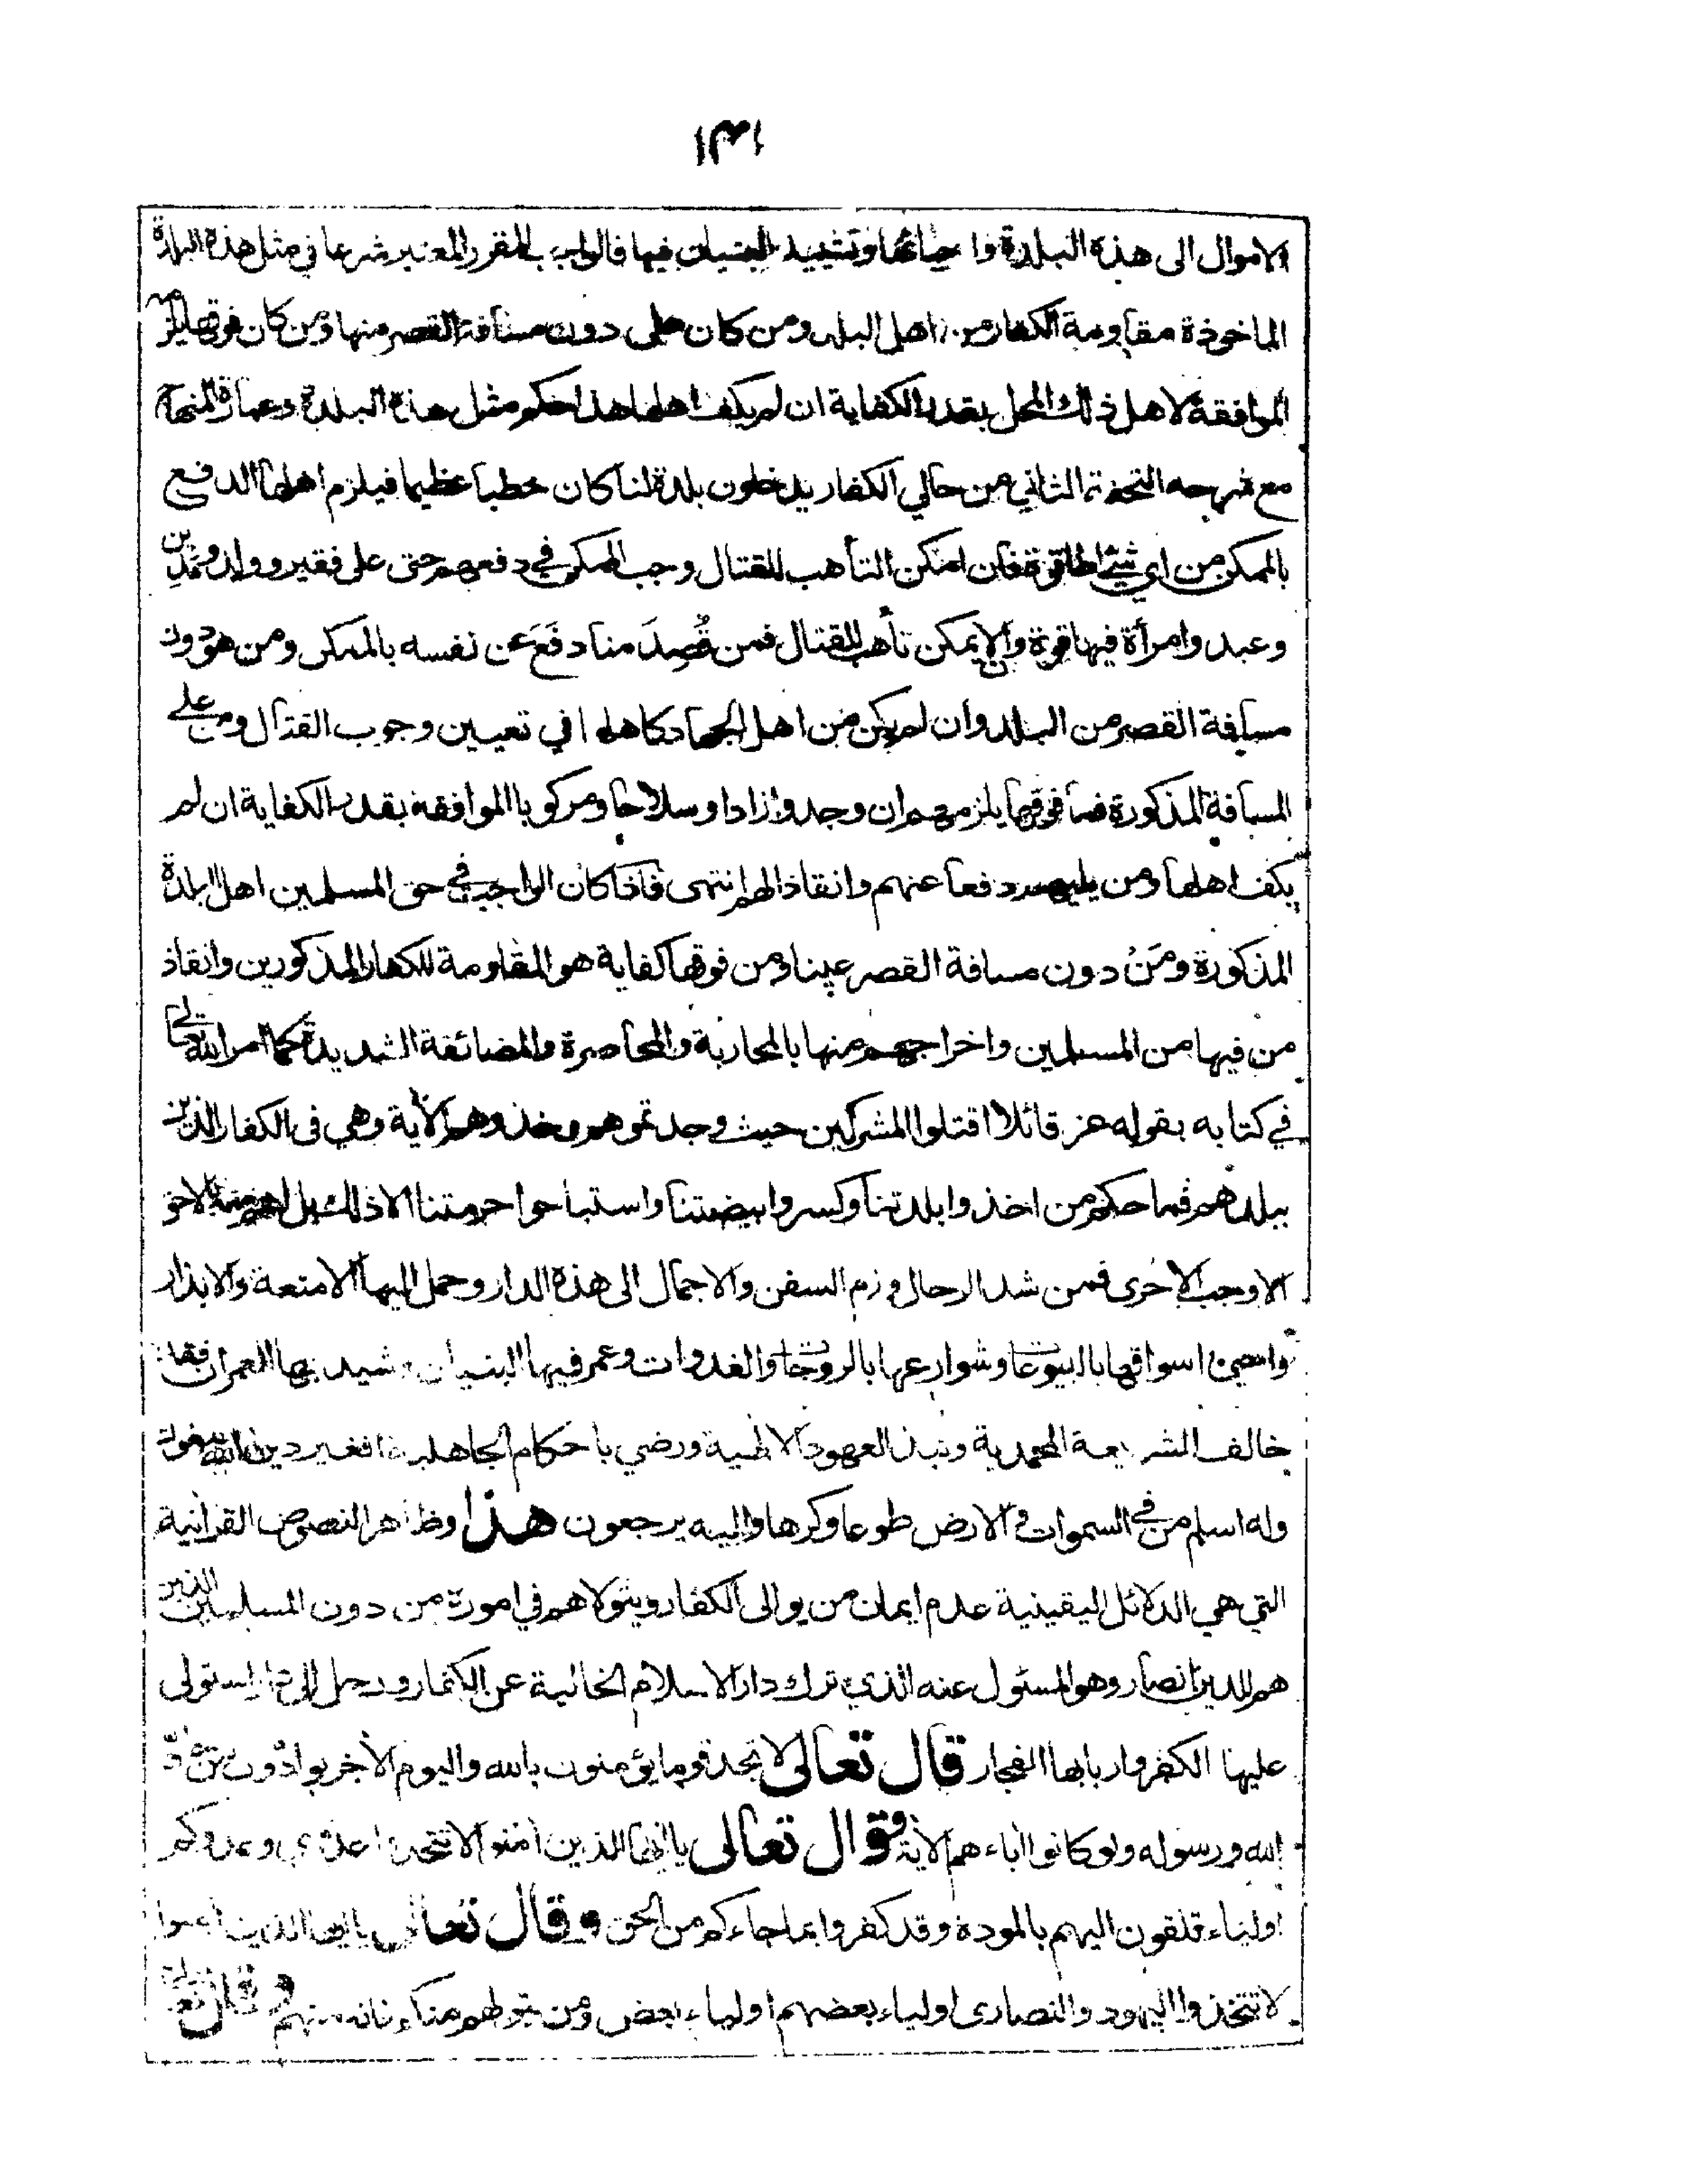 ١٣١
الاموال الى هذه البلدة واحيائها وتشييد البنيان فيها فالواجب المقرر المعتبر شرعا في مثل هذه البلدة
الماخوذة مقاومة الكفار من اهل البلد ومن كان على دون مسافة القصر منها ومن كان فوقها يلزمه
الموافقة لاهل ذلك المحل بقدر الكفاية ان لم يكف اهلها هذا حكم مثل هذه البلدة وعبارة المنهاج
مع شرحه التحفة الثاني من حالي الكفار يدخلون بلدة لنا كان خطبا عظيما فيلزم اهلها الدفع
بالممكن من اي شيء اطاقوه فان امكن التأهب للقتال وجب الممكن في دفعهم حتى على فقير وولد ومدين
وعبد وامرأة فيها قوة والا يمكن تأهب للقتال فمن قُصِدَ منا دفَعَ عن نفسه بالممكن ومن هو دون
مسافة القصر من البلد وان لم يكن من اهل الجهاد كاهلها في تعيين وجوب القتال ومن على
المسافة المذكورة فما فوقها يلزمهم ان وجدوا زادا وسلاحا ومركوبا الموافقة بقدر الكفاية ان لم
يكف اهلها ومن يليهم دفعا عنهم وانقاذا لهم انتهى فاذا كان الواجب في حق المسلمين اهل البلدة
المذكورة ومَنْ دون مسافة القصر عينا ومن فوقها كفاية هو المقاومة للكفار المذكورين وانقاذ
من فيها من المسلمين واخراجهم منها بالمحاربة والمحاصرة والمضائقة الشديدة كما امر الله تعالى
في كتابه بقوله عز قائلا اقتلوا المشركين حيث وجدتموهم وخذوهم الأية وهي في الكفار الذين
ببلدهم فما حكم من اخذوا بلدتنا وكسروا بيضتنا واستباحوا حرمتنا الا ذلك بل الاحق
الاوجب الاخرى فمن شد الرحال وزم السفن والاجمال الى هذه الدار وحمل اليها الامتعة والابذار
اسواقها بالبيوعات وشوارعها بالروحات والغدوات وعمر فيها البنيان وشيد بها العمران فقد
خالف الشريعة المحمدية ونبذ العهود الالهية ورضي باحكام الجاهلية افغير دين الله يبغون
وله اسلم من في السموات والارض طوعا وكرها واليه يرجعون هذا وظاهر النصوص القرأنية
التي هي الدلائل اليقينية عدم ايمان من يوالى الكفار ويتولاهم في اموره من دون المسلمين الذين
هم للدين انصار وهو المسئول عنه الذي ترك دار الاسلام الخالية عن الكفار ورحل الى المستولى
عليها الكفر واربابها الفجار قال تعالى لا تجد قوما يؤمنون بالله واليوم الأخر يوادّون من حادّ
الله ورسوله ولو كانوا أباءهم الأية وقال تعالى يا ايها الذين أمنوا لا تتخذوا عدوي وعدوكم
اولياء تلقون اليهم بالمودة وقد كفروا بما جاءكم من الحق وقال تعالى يا ايها الذين أمنوا
لا تتخذوا اليهود والنصارى اولياء بعضهم اولياء بعض ومن يتولهم منكم فانه منهم وقال تعالى